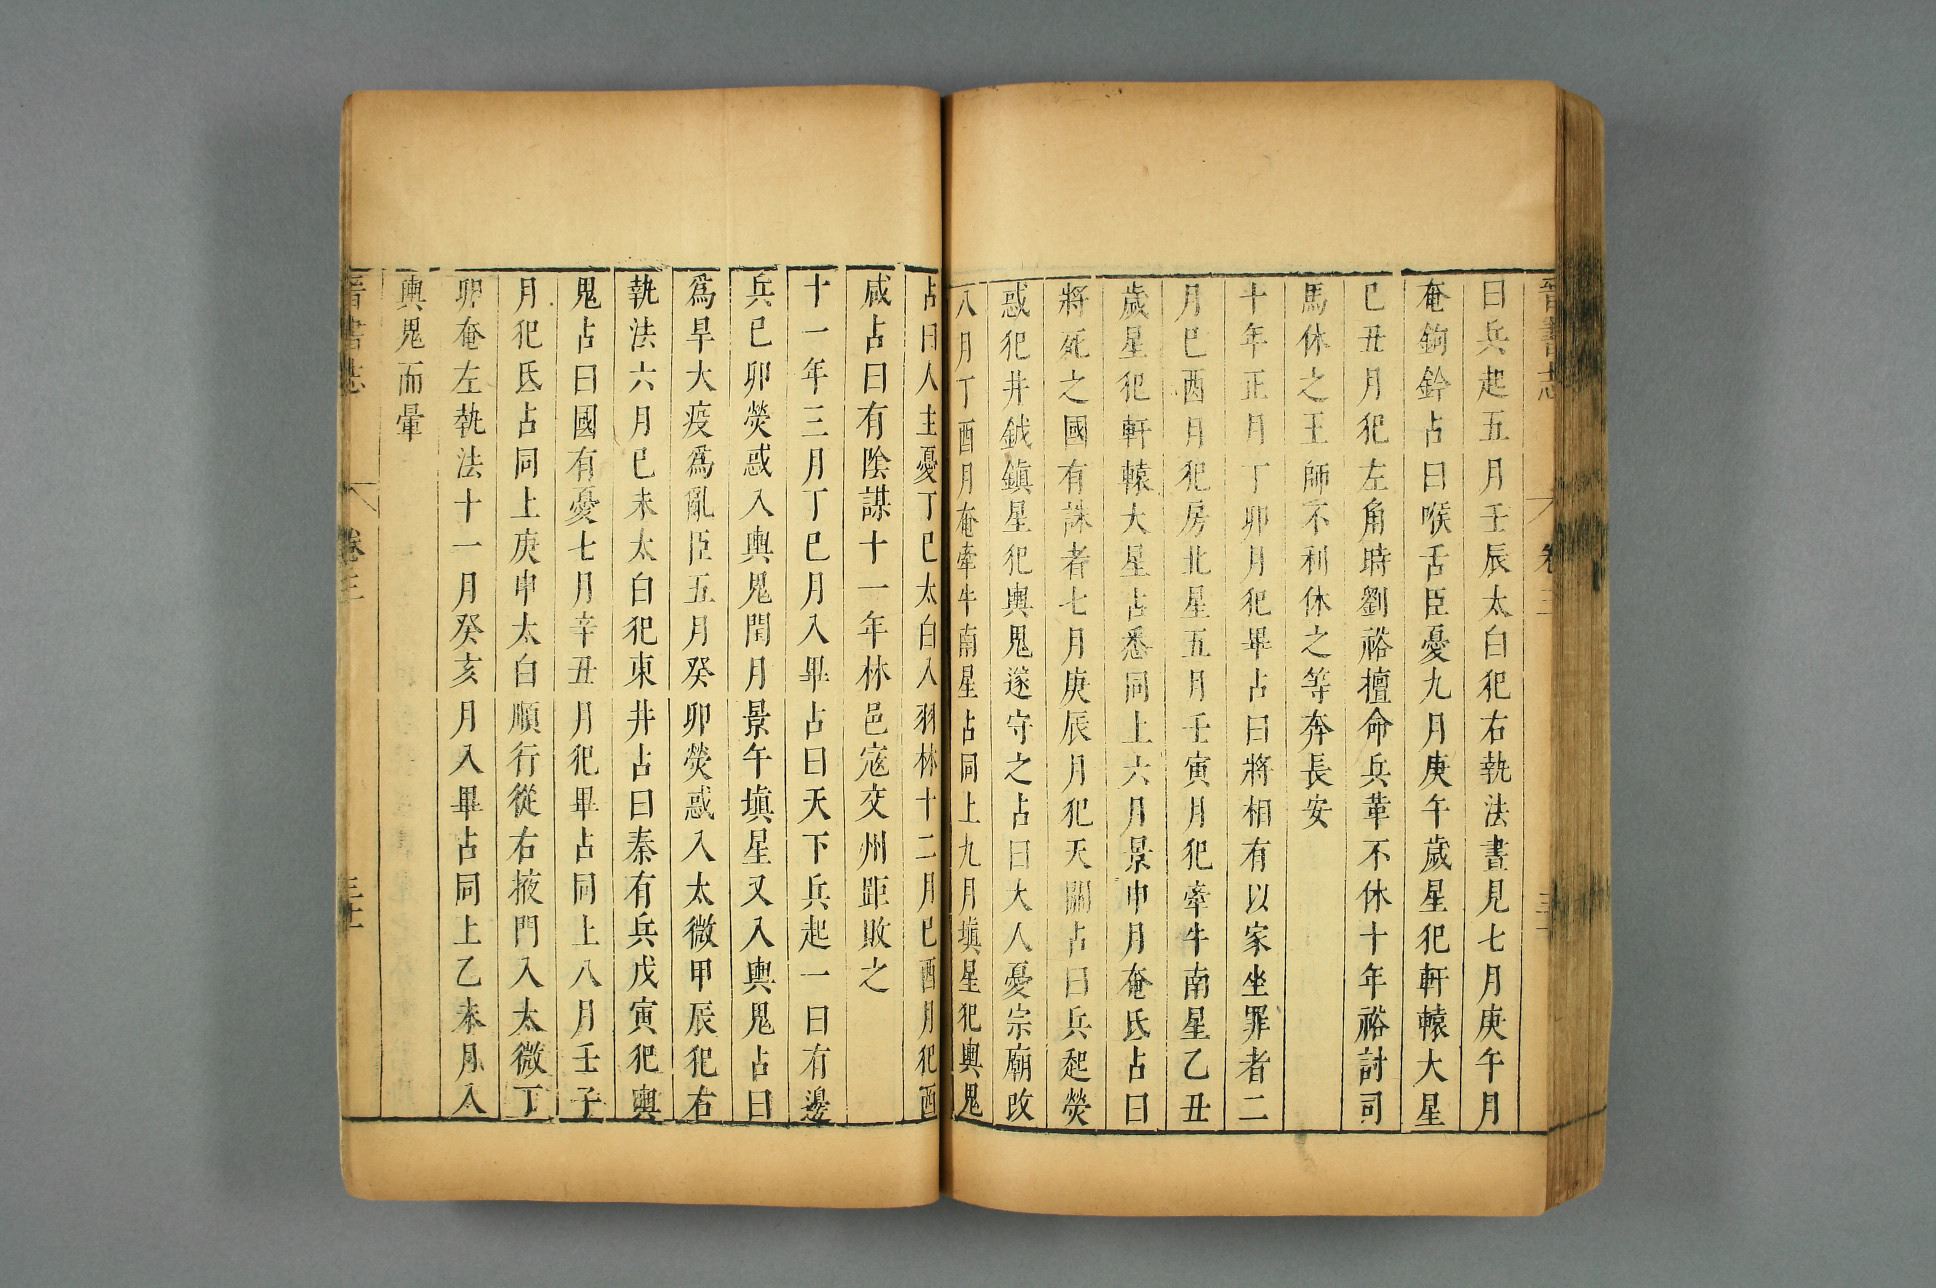 晉書志 卷三
曰兵起五月壬辰太白犯右執法晝見七月庚午月
奄鉤鈐占曰喉舌臣憂九月庚午歲星犯軒轅大星
己丑月犯左角時劉裕擅命兵革不休十年裕討司
馬休之王師不利休之等奔長安
十年正月丁卯月犯畢占曰將相有以家坐罪者二
月己酉月犯房北星五月壬寅月犯牽牛南星乙丑
歲星犯軒轅大星占悉同上六月景申月奄氐占曰
將死之國有誅者七月庚辰月犯天關占曰兵起熒
惑犯井鉞鎮星犯輿鬼遂守之占曰大人憂宗廟改
八月丁酉月奄牽牛南星占同上九月填星犯輿鬼
占曰人主憂丁巳太白入羽林十二月己酉月犯酉
咸占曰有陰謀十一年林邑寇交州距敗之
十一年三月丁巳月入畢占曰天下兵起一曰有邊
兵己卯熒惑入輿鬼閏月景午填星又入輿鬼占曰
爲旱大疫爲亂臣五月癸卯熒惑入太微甲辰犯右
執法六月己未太白犯東井占曰秦有兵戊寅犯輿
鬼占曰國有憂七月辛丑月犯畢占同上八月壬子
月犯氐占同上庚申太白順行從右掖門入太微丁
卯奄左執法十一月癸亥月入畢占同上乙未月入
輿鬼而暈
晉書志 卷三